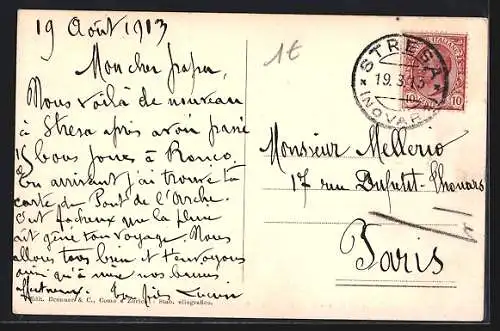 19 Août 1913
Mon cher papa,
Nous voilà de nouveau
à Stresa après avoir passé
bons jours à Ronco.
En arrivant j'ai trouvé ta
carte de Pont de l'Arche.
C'est fâcheux que la pluie
ait gêné ton voyage. Nous
allons tous bien et t'envoyons
ainsi qu'à mère nos bons
affectueux. Ton fils Lucien
1€
STRESA
19.8.13
(NOVARA)
10 10
Monsieur Mellerio
17 rue Dufetit-Thouars
Paris
Edit. Brunner & C., Como e Zürich - Stab. eliografico.